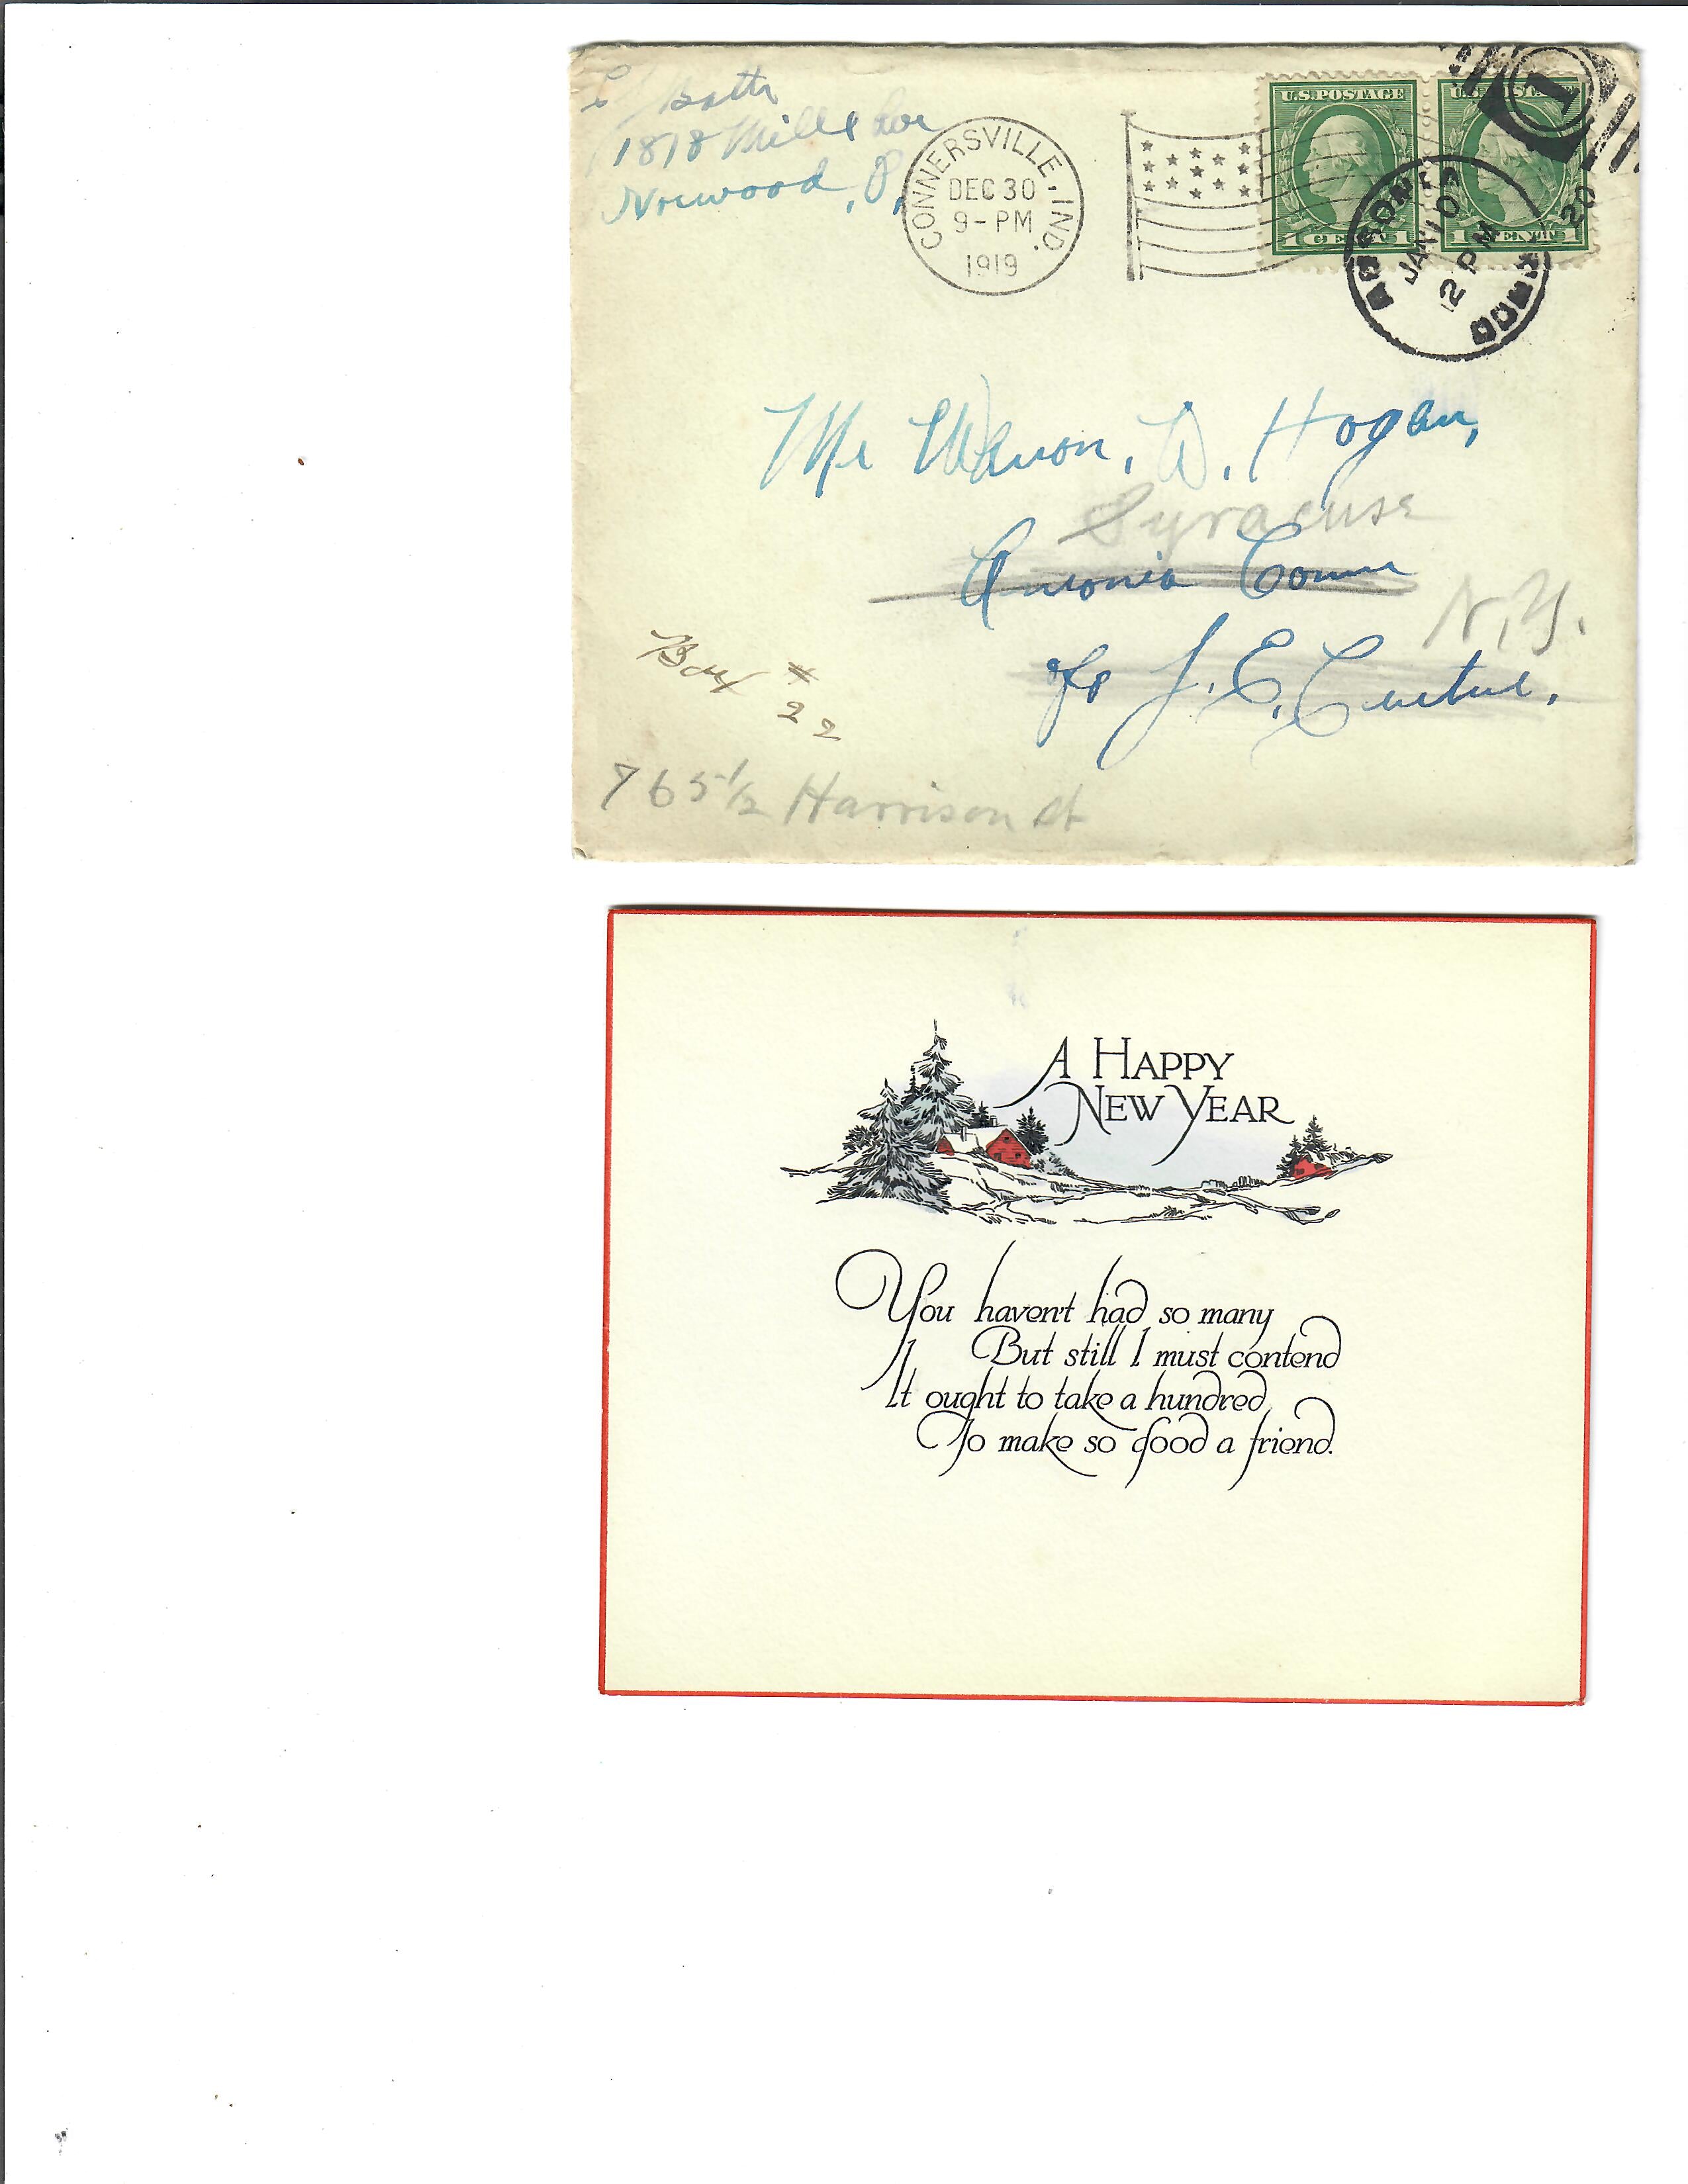 1878 Mills
Norwood, O,
CONNERSVILLE, IND.
DEC 30
9-PM
1919
U.S. POSTAGE
1 CENT 1
U.S. POSTAGE
1 CENT 1
1
ANSONIA
CONN.
JAN 10
2 PM
20
Mr W. Hogan,
Syracuse
Ansonia Conn
N.Y.
c/o J. E.
Box #
22
765 1/2 Harrison St
A HAPPY
NEW YEAR
You haven't had so many
But still I must contend
It ought to take a hundred
To make so good a friend.